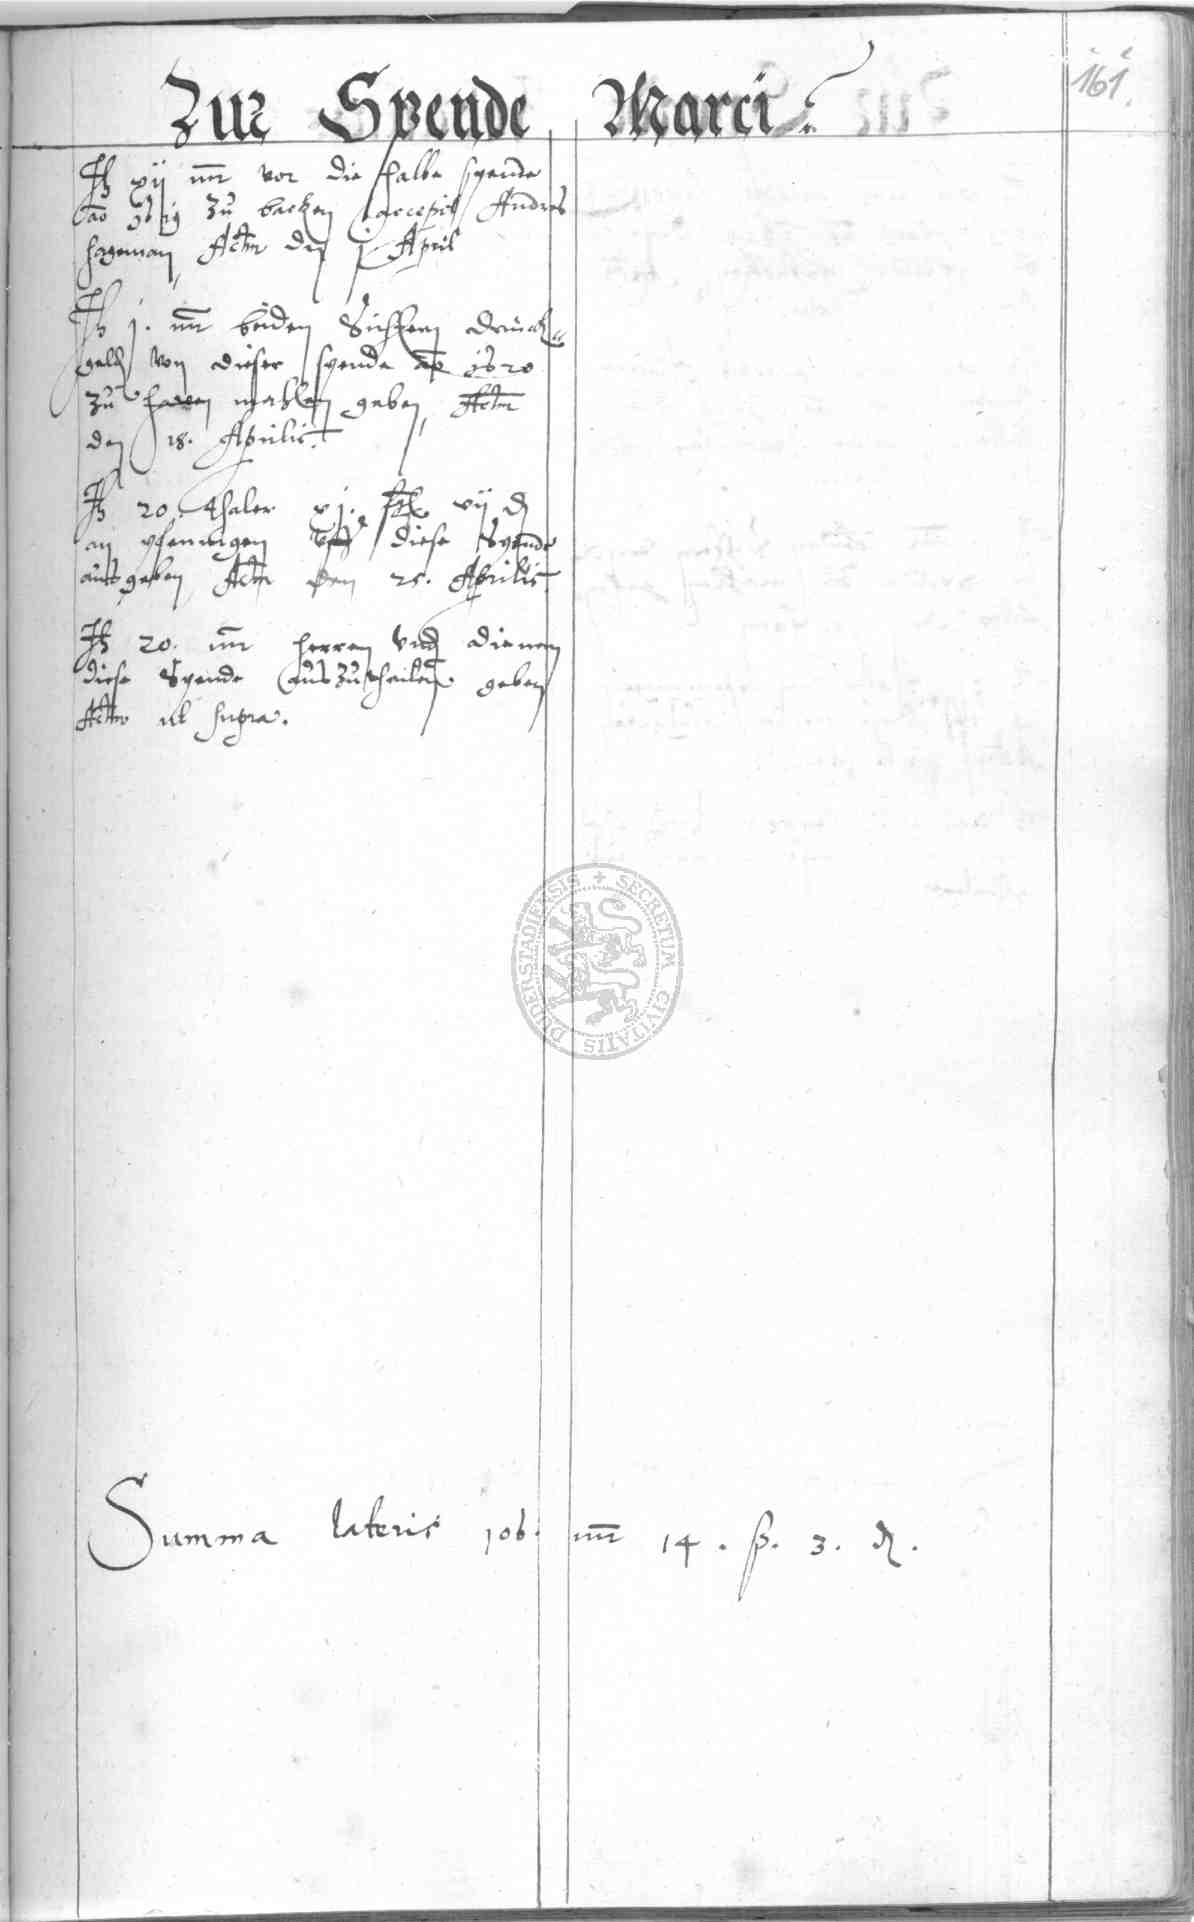 161.
Zur Spende Marci.
It xij mr vor die halbe spende
zu backen accepit Andres
Hageman, Actm den j April
It j. mr beiden
geld von dieser spende ao
zu mahlen geben, Actm
den 18. Aprilis.
It 20. thaler xj. vij d
an pfennigen uff diese Spende
ausgeben Actm den 25. Aprilis.
It 20. mr herren und dienern
diese Spende auszutheilen geben
Actm ut supra.
SECRETUM CIVITATIS DUDERSTADIENSIS
Summa lateris 106. mr 14. ß. 3. d.